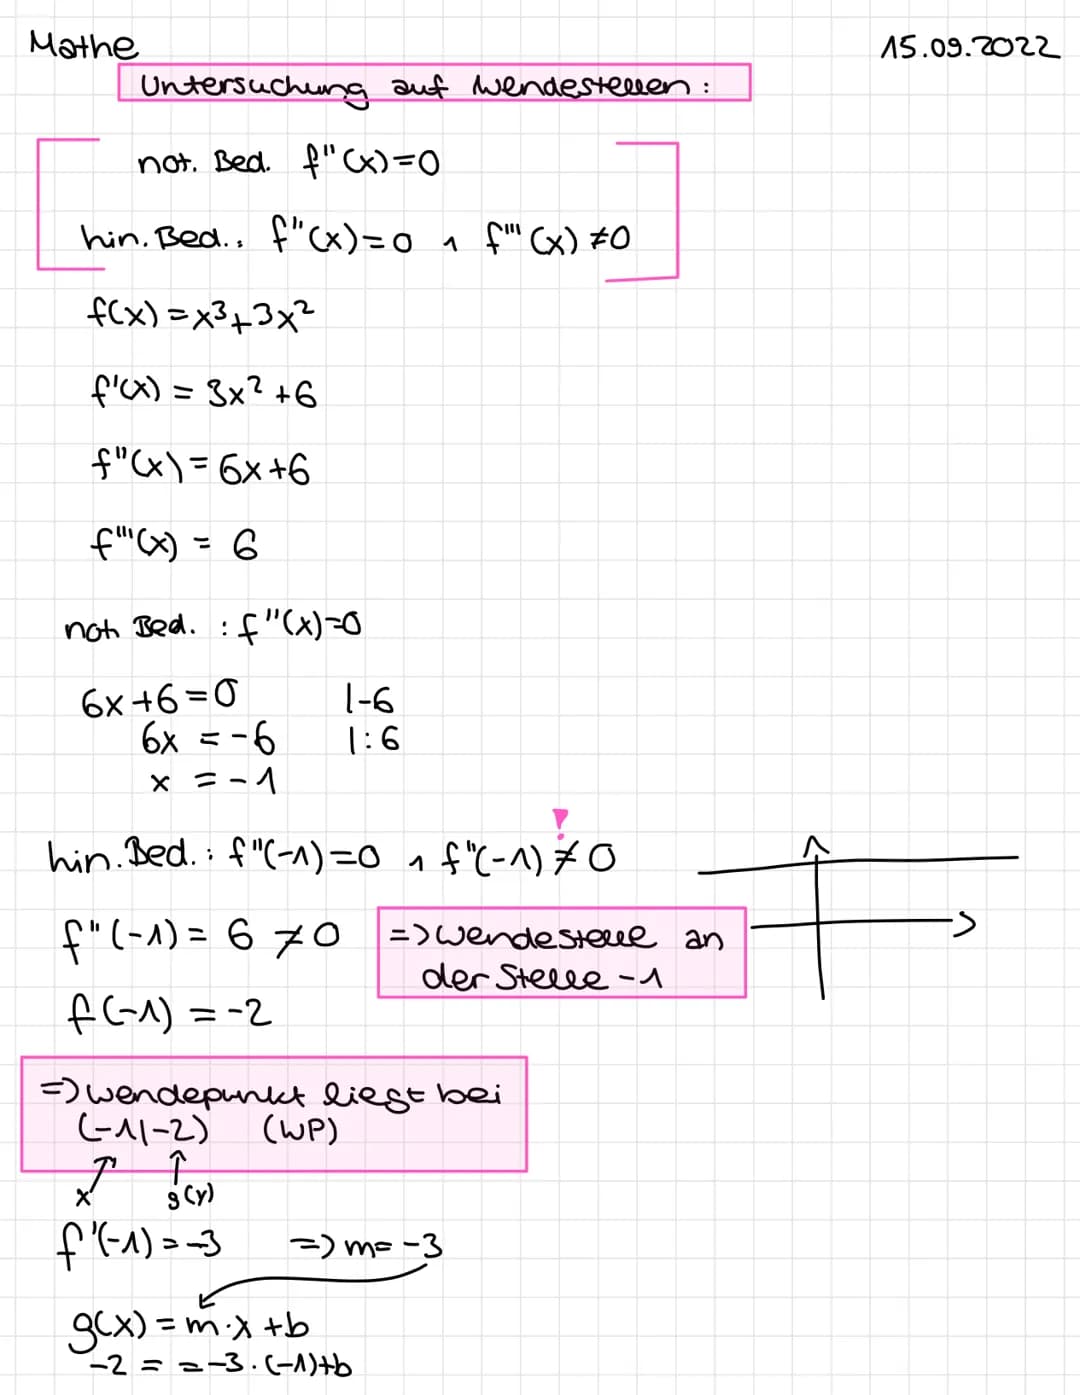 Mathe 15.09.2022
Untersuchung auf Wendestellen:
not. Bed. f''(x)=0
hin. Bed.: f''(x)=0 ∧ f'''(x) ≠0
f(x)=x³+3x²
f'(x) = 3x² +6
f''(x)=6x+6
f'''(x) = 6
not Bed. : f''(x)=0
6x+6=0 |-6
6x = -6 |:6
x = -1
!
hin. Bed.: f''(-1)=0 ∧ f''(-1) ≠ 0
f''(-1) = 6 ≠0 =>Wendestelle an
der Stelle -1
f(-1) = -2
=>Wendepunkt liegt bei
(-1|-2) (WP)
x g(y)
f'(-1) = -3 => m= -3
g(x) = m·x +b
-2 = =-3·(-1)+b